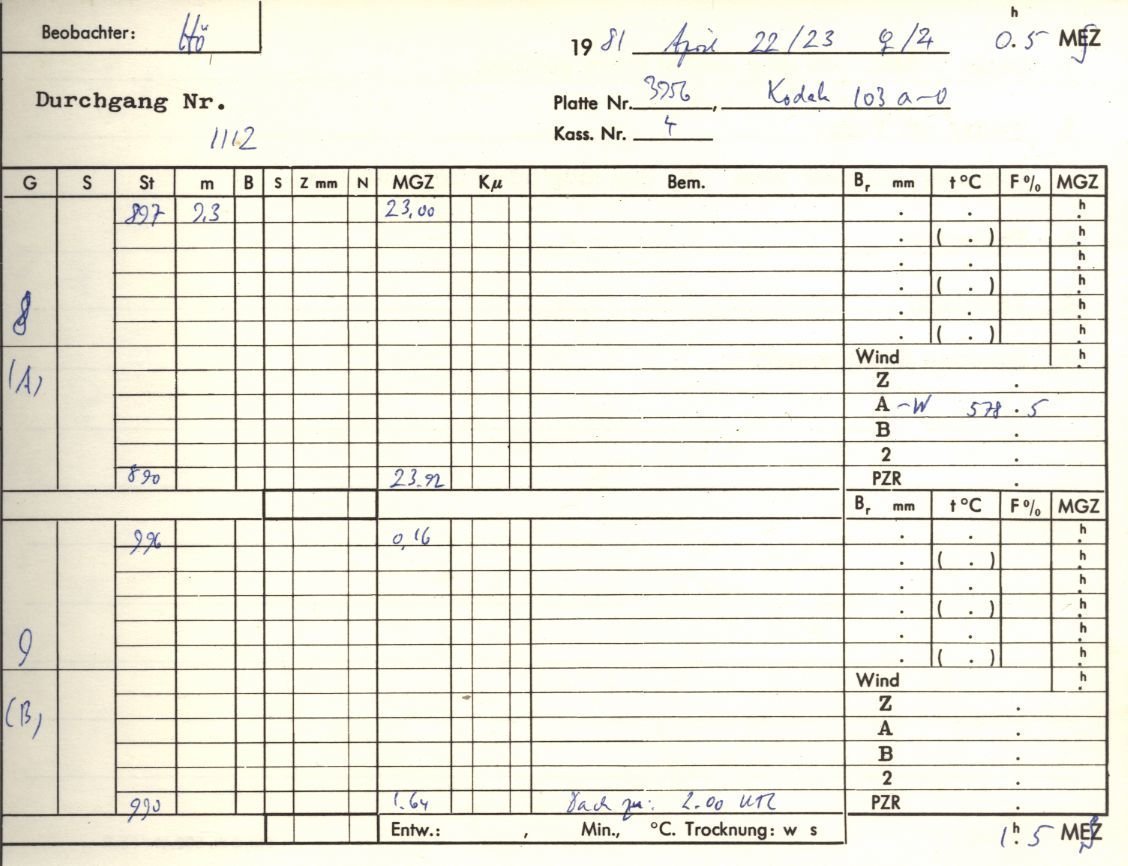 Beobachter: Hö
19 81 April 22/23 ☿/♃ 0.ʰ5 MEZ
Durchgang Nr.
1112
Platte Nr. 3956, Kodak 103 a-0
Kass. Nr. 4
G S St m B S Z mm N MGZ Kμ Bem. Bᵣ mm t °C F % MGZ
897 9,3 23,00 . . h.
. ( . ) h.
. . h.
. ( . ) h.
. . h.
8 . ( . ) h.
Wind h.
(A) Z .
A -W 578.5
B .
2 .
890 23.92 PZR .
Bᵣ mm t °C F % MGZ
996 0,16 . . h.
. ( . ) h.
. . h.
. ( . ) h.
. . h.
9 . ( . ) h.
Wind h.
(B) Z .
A .
B .
2 .
990 1.64 Dach zu: 2.00 UTC PZR .
Entw.: , Min., °C. Trocknung: w s 1ʰ.5 MEZ